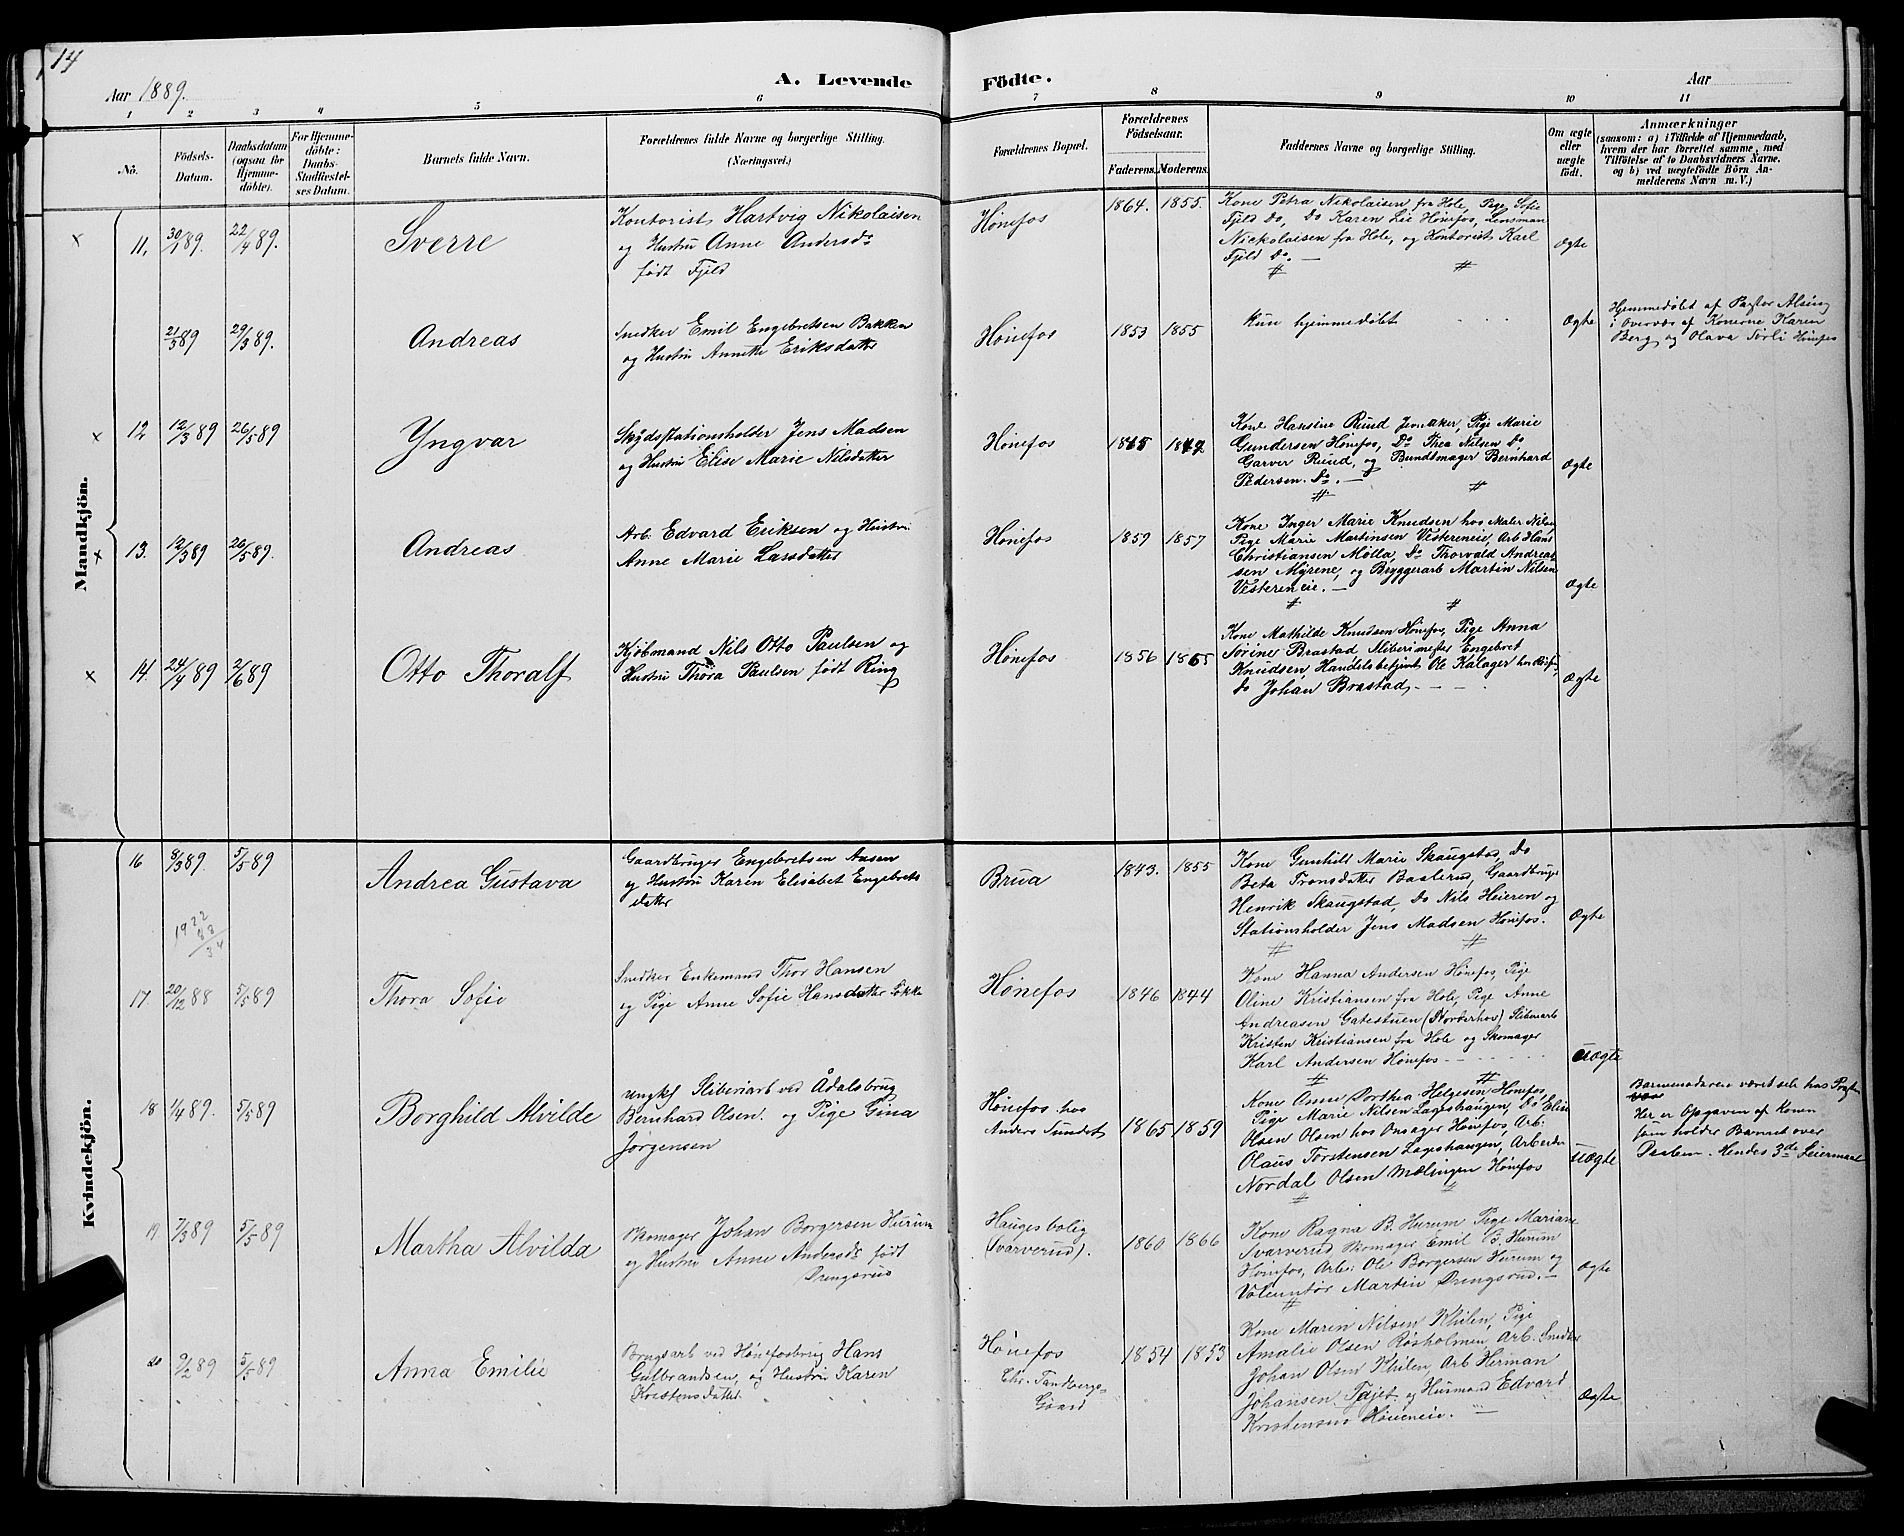 14
Aar 1889.
A. Levende Födte.
Aar
1 2 3 4 5 6 7 8 9 10 11
Nö.
Födsels-
Datum.
Daabsdatum
(ogsaa for
Hjemme-
döbte).
For Hjemme-
döbte:
Daabs-
Stadfæstel-
ses Datum.
Barnets fulde Navn.
Forældrenes fulde Navne og borgerlige Stilling.
(Næringsvei.)
Forældrenes Bopæl.
Forældrenes
Födselsaar.
Faderens. Moderens.
Faddernes Navne og borgerlige Stilling.
Om ægte
eller
uægte
født.
Anmærkninger
(saasom: a) i Tilfælde af Hjemmedaab,
hvem der har forrettet samme, med
Tilföielse af to Daabsvidners Navne.
og b) ved uægtefödte Börn An-
melderens Navn m. V.)
Mandkjön.
11, 30/1 89. 22/4 89.
Sverre
Kontorist Hartvig Nikolaisen
og Hustru Anne Andersd.
født Fjeld
Hønefos
1864. 1855.
Kone Petra Nikolaisen fra Hole, Pige Sofie
Fjeld Do, Do Karen Lie Hønefos, Lensman
Nickolaisen fra Hole, og Kontorist Karl
Fjeld Do. —
Ægte
21/3 89 29/3 89.
Andreas
Snedker Emil Engebretsen Bakken
og Hustru Annette Eriksdatter
Hønefos
1853 1855
kun hjemmedøbt
Ægte
Hjemmedøbt af Pastor Alsing
i Overvær af Konerne Karen
Berg og Olava Sørli Hønefos
12 12/3 89 26/5 89
Yngvar
Skydsstationsholder Jens Madsen
og Hustru Elise Marie Nilsdatter
Hønefos
Kone Hansine Ruud Jevnaker, Pige Marie
Gundersen Hønefos, Do Thea Nilsen Do
Garver Ruud, og Bundtmager Bernhard
Pedersen. Do. —
Ægte
13. 12/3 89 26/5 89.
Andreas
Arb. Edvard Eriksen og Hustru
Anne Marie Larsdatter
Hønefos
1859 1857
Kone Inger Marie Knudsen hos Maler Nilsen
Pige Marie Martinsen Vestereneie, Arb Hans
Christiansen Mølla, Do Thorvald Andreas-
sen Myrene, og Bryggerarb Martin Nilsen
Vestereneie. —
Ægte
14. 24/4 89 2/6 89
Otto Thoralf
Kjøbmand Nils Otto Paulsen og
Hustru Thora Paulsen født Ring
Hønefos
1856 1865
Kone Mathilde Knudsen Hønefos, Pige Anna
Sørine Brastad Sliberimester Engebret
Knudsen, Handelsbetjent Ole Kalager
Do Johan Brastad, - - -
Ægte
Kvindekjön.
16 8/3 89. 5/5 89
Andrea Gustava
Gaardbruger Engebretsen Aasen
og Hustru Karen Elisabet Engebrets
datter
Brua
1843. 1855
Kone Gunhild Marie Skaugstad, Do
Beta Tronsdatter Baslerud, Gaardbruger
Henrik Skaugstad, Do Nils Heieren og
Stationsholder Jens Madsen Hønefos.
Ægte
1922
33
34
17 20/12 88 5/5 89
Thora Sofie
Snedker Enkemand Thor Hansen
og Pige Anne Sofie Hansdatter Løkke
Hønefos
1846 1844
Kone Hanna Andersen Hønefos, Pige
Oline Kristiansen fra Hole, Pige Anne
Andreasen Gatestuen (Norderhov) Sliberiarb
Kristen Kristiansen fra Hole og Skomager
Karl Andersen Hønefos - - -
uægte
18 1/4 89. 5/5 89
Borghild Alvilde
Ungkf Sliberiarb ved Ådalsbrug
Bernhard Olsen. og Pige Gina
Jørgensen
Hønefos hos
Anders Sundet
1865 1859
Kone Anne Dorthea Helgesen Hønefos
Pige Marie Nilsen Lageshaugen, Do Elise
Olsen Olsen hos Onsager Hønefos, Arb:
Olaus Torstensen Lageshaugen, Arbeider
Nordal Olsen Mælingen Hønefos
uægte
Barnemoderen været selv hos Pastor
Her er Opgaven af Konen
som holder Barnet over
Daaben. Hendes 3de Leiermaal
19. 7/3 89 5/5 89
Martha Alvilda
Skomager Johan Borgersen Hurum
og Hustru Anne Andersd. født
Drengsrud
Haugesbolig
(Svarverud).
1860 1866
Kone Ragna B. Hurum Pige Mariane
Svarverud Skomager Emil B. Hurum
Hønefos, Arb: Ole Borgersen Hurum og
Voluntør Martin Drengsrud. —
Ægte
20 9/2 89 5/5 89
Anna Emilie
Brugsarb ved Hønefosbrug Hans
Gulbrandsen, og Hustru Karen
Kristensdatter
Hønefos
Chr. Tandbergs-
Gaard
1854 1853
Kone Maren Nilsen Khilen, Pige
Amalie Olsen Røsholmen Arb. Snedker
Johan Olsen Khilen, Arb Herman
Johansen Fajet og Husmand Edvard
Kristensen Høneneie. —
Ægte